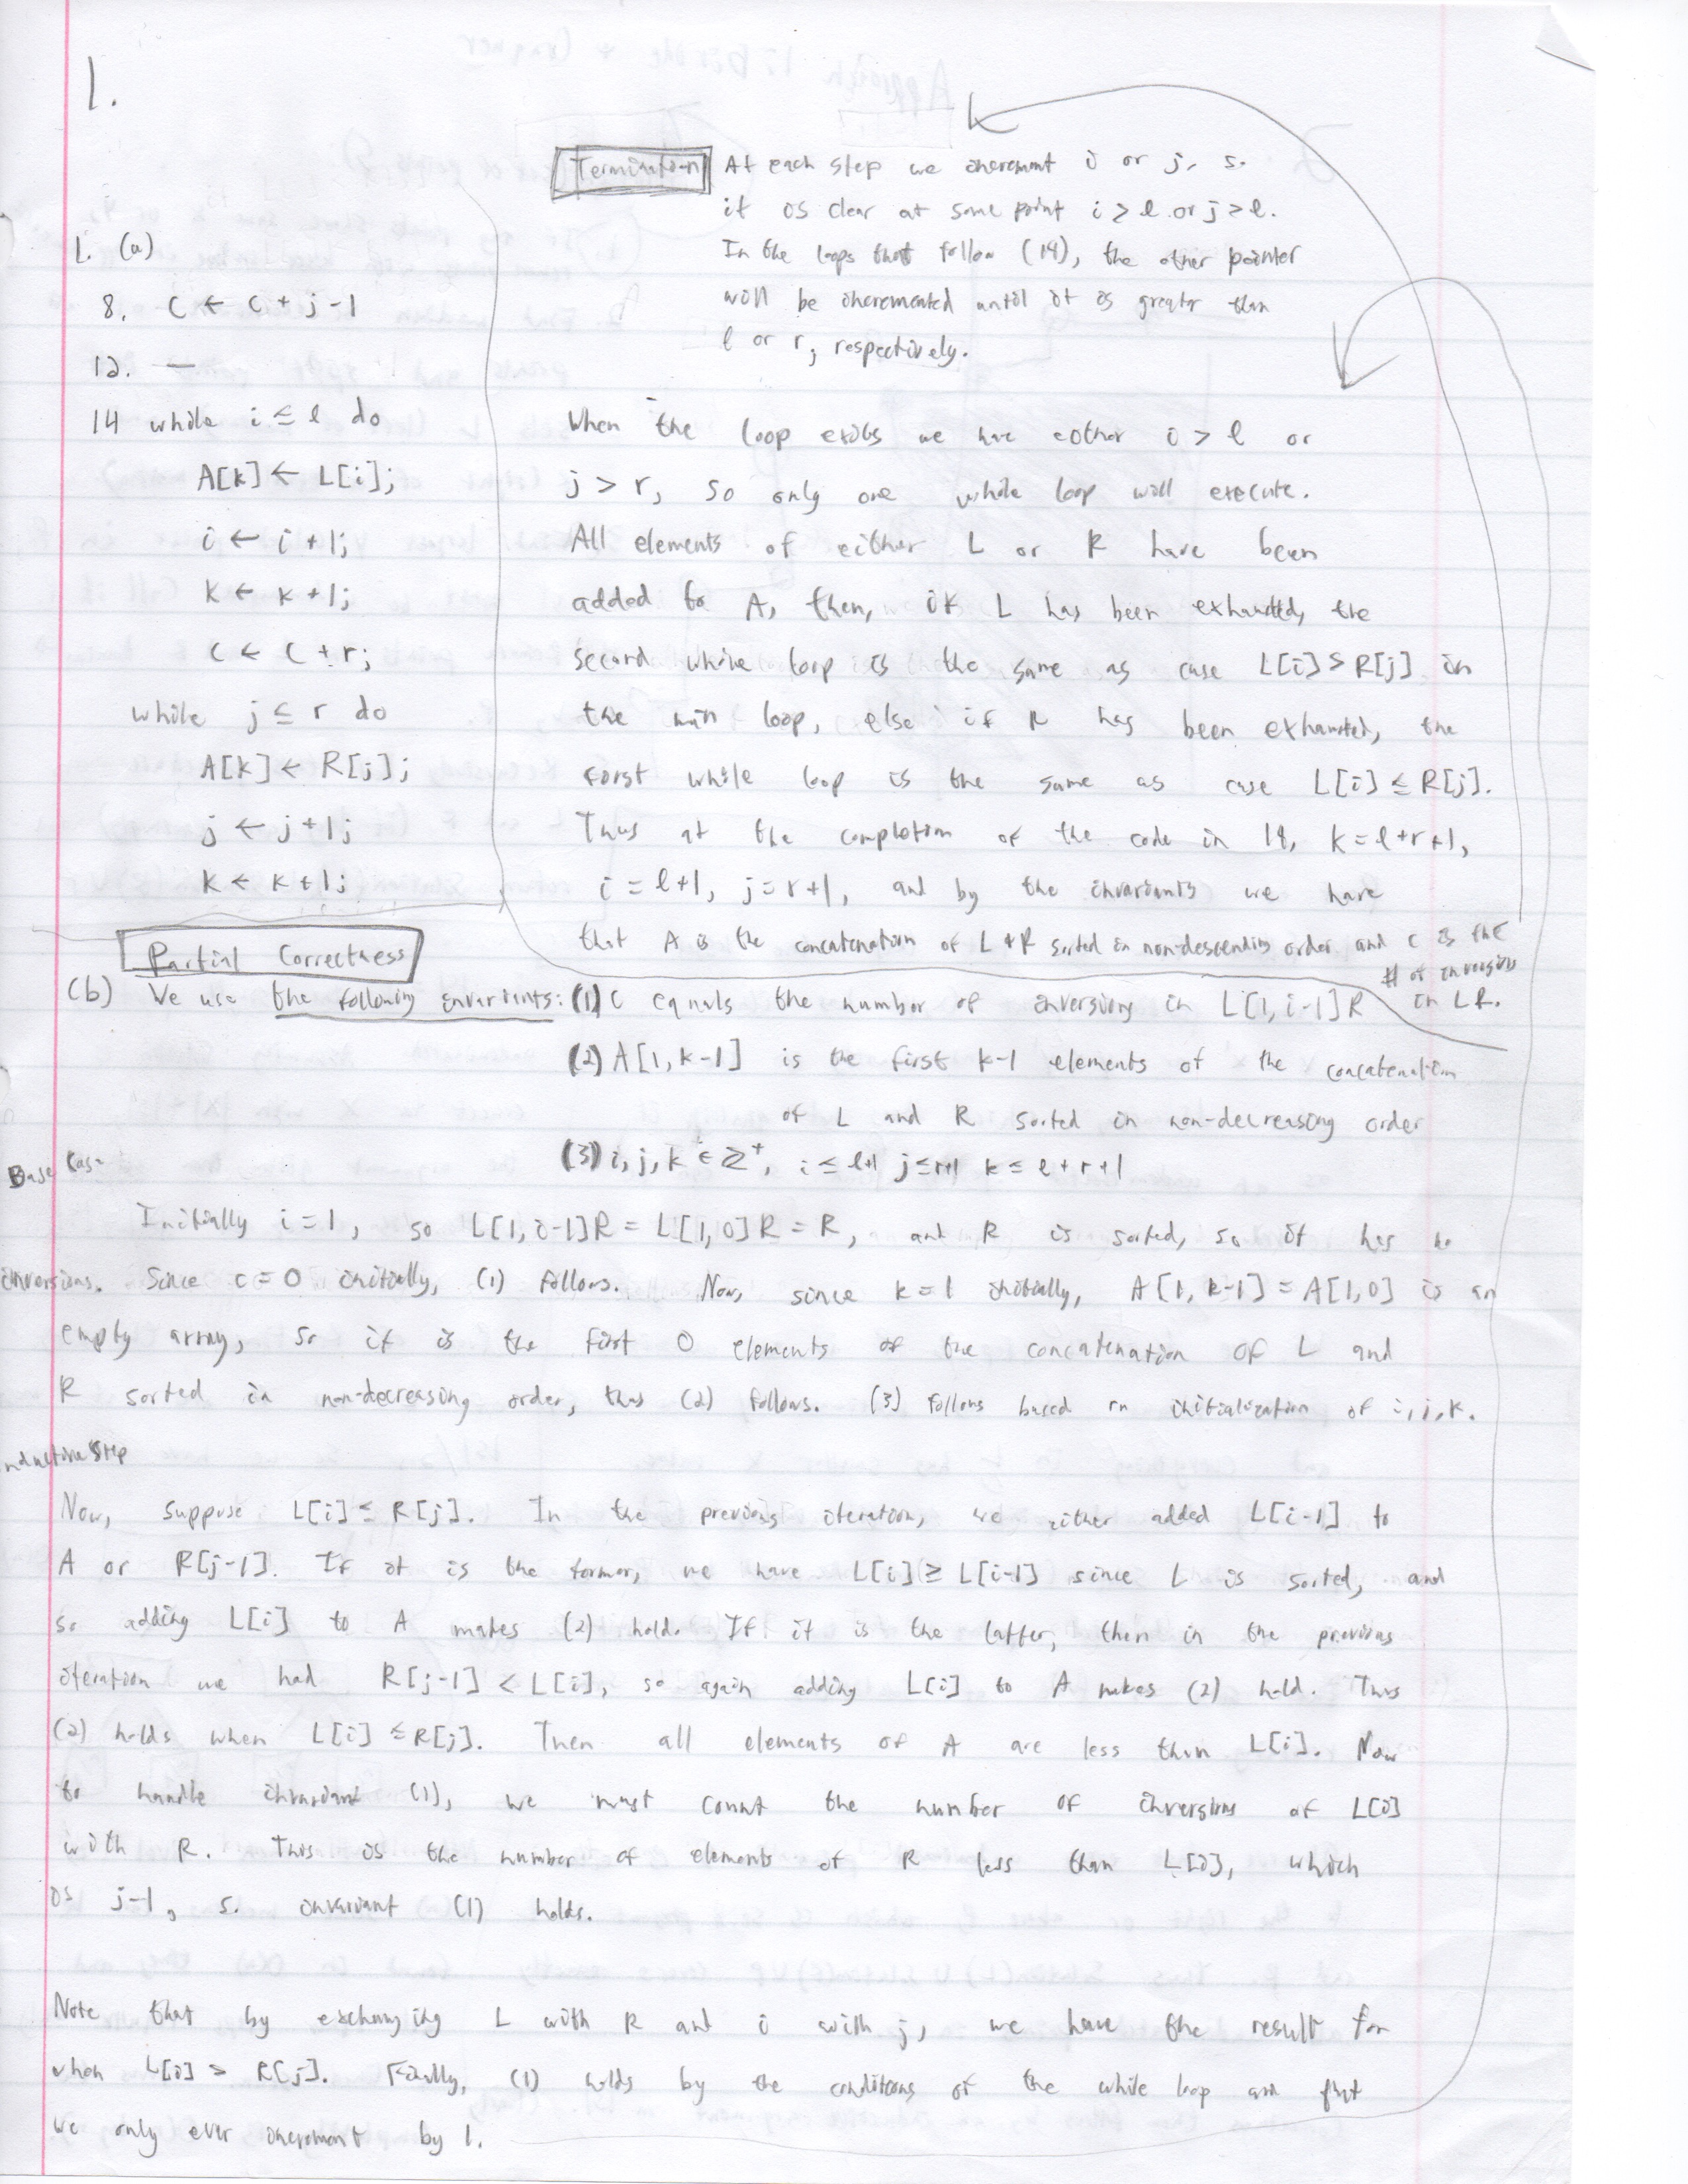 1.
Termination At each step we increment i or j, so
it is clear at some point i > l or j > l.
In the loops that follow (14), the other pointer
will be incremented until it is greater than
l or r, respectively.
1. (a)
8. C ← C + j - 1
12. —
14 while i ≤ l do
A[k] ← L[i];
i ← i + 1;
k ← k + 1;
C ← C + r;
while j ≤ r do
A[k] ← R[j];
j ← j + 1;
k ← k + 1;
When the loop exits we have either i > l or
j > r, so only one while loop will execute.
All elements of either L or R have been
added to A, then, if L has been exhausted, the
second while loop is the same as case L[i] > R[j] in
the main loop, else if R has been exhausted, the
first while loop is the same as case L[i] ≤ R[j].
Thus at the completion of the code in 14, k = l + r + 1,
i = l + 1, j = r + 1, and by the invariants we have
that A is the concatenation of L + R sorted in non-descending order and C is the
# of inversions
in LR.
Partial Correctness
(b) We use the following invariants: (1) C equals the number of inversions in L[1, i-1]R
(2) A[1, k-1] is the first k-1 elements of the concatenation
of L and R sorted in non-decreasing order
(3) i, j, k ∈ ℤ⁺, i ≤ l+1 j ≤ r+1 k ≤ l + r + 1
Base Case
Initially i = 1, so L[1, i-1]R = L[1, 0]R = R, and R is sorted, so it has no
inversions. Since c = 0 initially, (1) follows. Now, since k = 1 initially, A[1, k-1] = A[1, 0] is an
empty array, so it is the first 0 elements of the concatenation of L and
R sorted in non-decreasing order, thus (2) follows. (3) follows based on initialization of i, j, k.
Inductive Step
Now, suppose L[i] ≤ R[j]. In the previous iteration, we either added L[i-1] to
A or R[j-1]. If it is the former, we have L[i] ≥ L[i-1] since L is sorted, and
so adding L[i] to A makes (2) hold. If it is the latter, then in the previous
iteration we had R[j-1] < L[i], so again adding L[i] to A makes (2) hold. Thus
(2) holds when L[i] ≤ R[j]. Then all elements of A are less than L[i]. Now
to handle invariant (1), we must count the number of inversions of L[i]
with R. This is the number of elements of R less than L[i], which
is j-1, so invariant (1) holds.
Note that by exchanging L with R and i with j, we have the result for
when L[i] > R[j]. Finally, (1) holds by the conditions of the while loop and that
we only ever increment by 1.